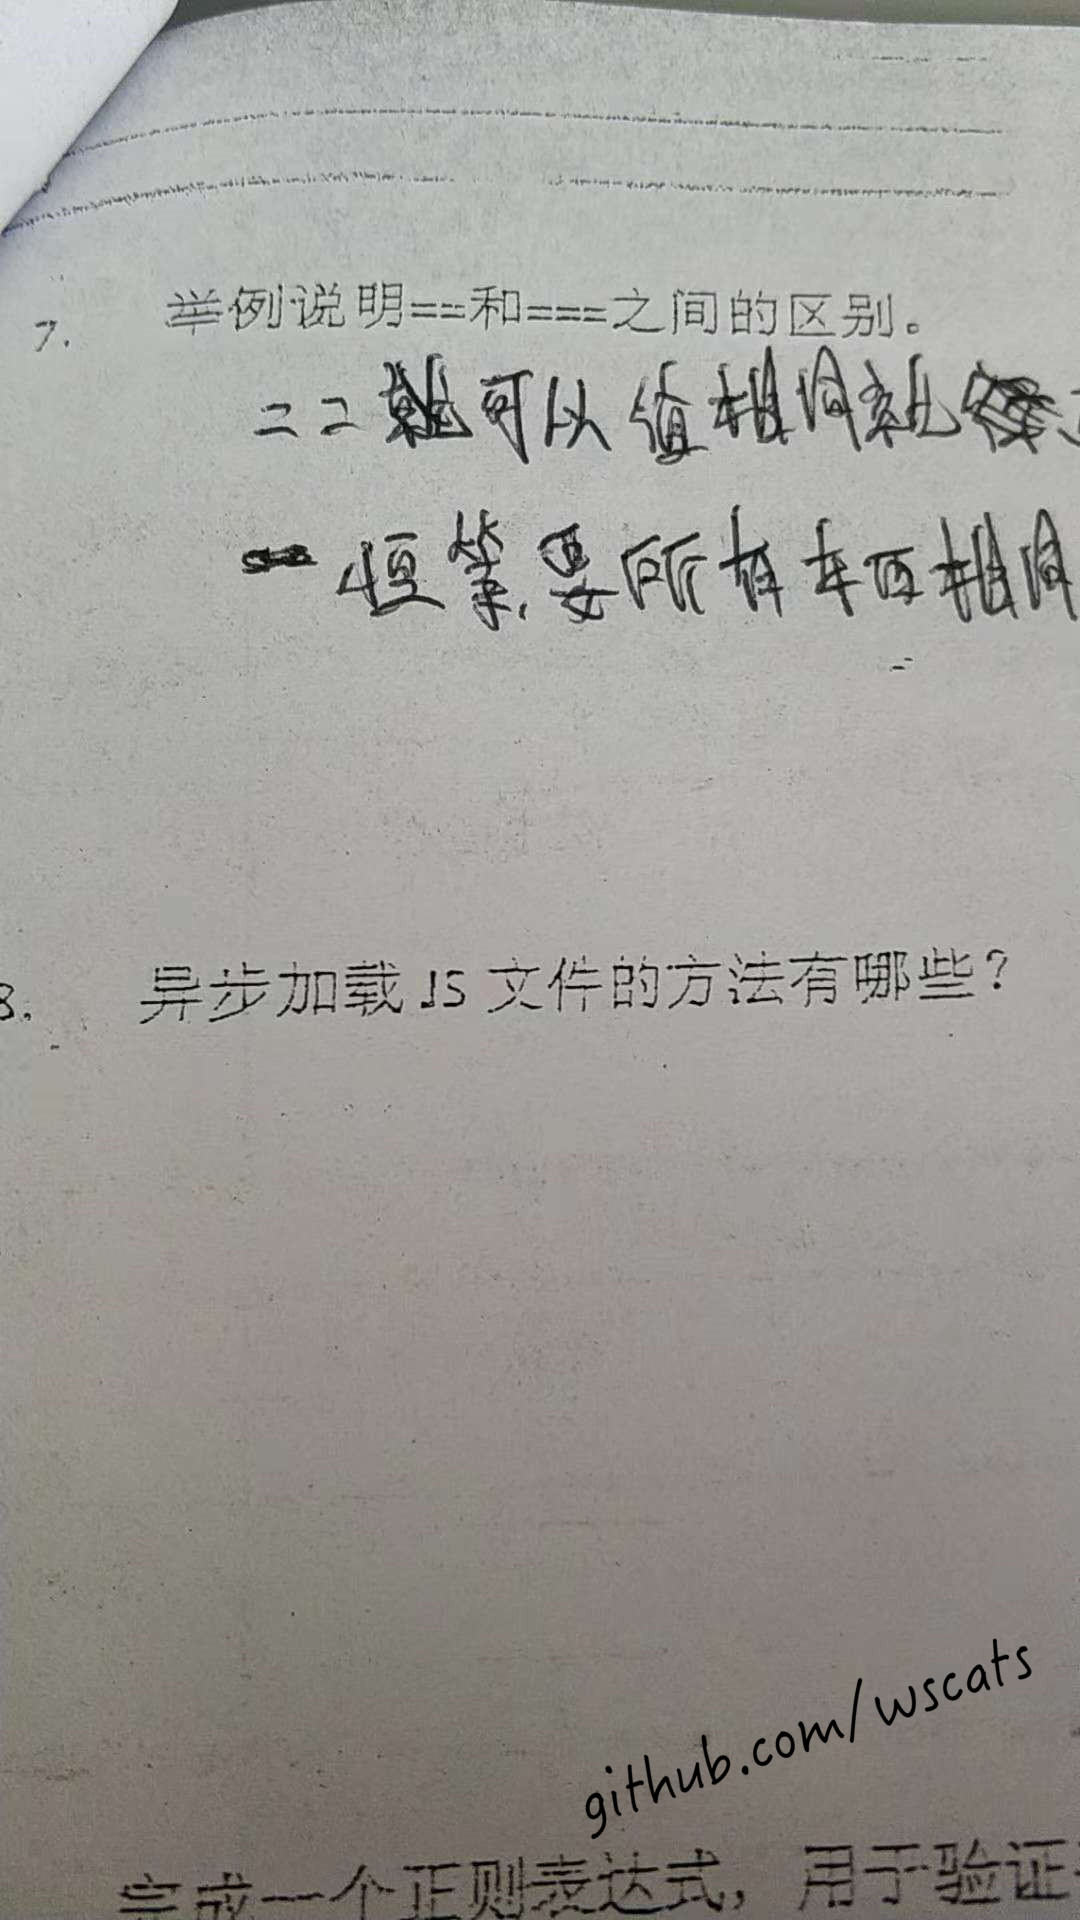 7. 举例说明==和===之间的区别。
== 就可以 值相同就
恒等, 要所有 相同
8. 异步加载JS文件的方法有哪些?
github.com/wscats
完成一个正则表达式, 用于验证